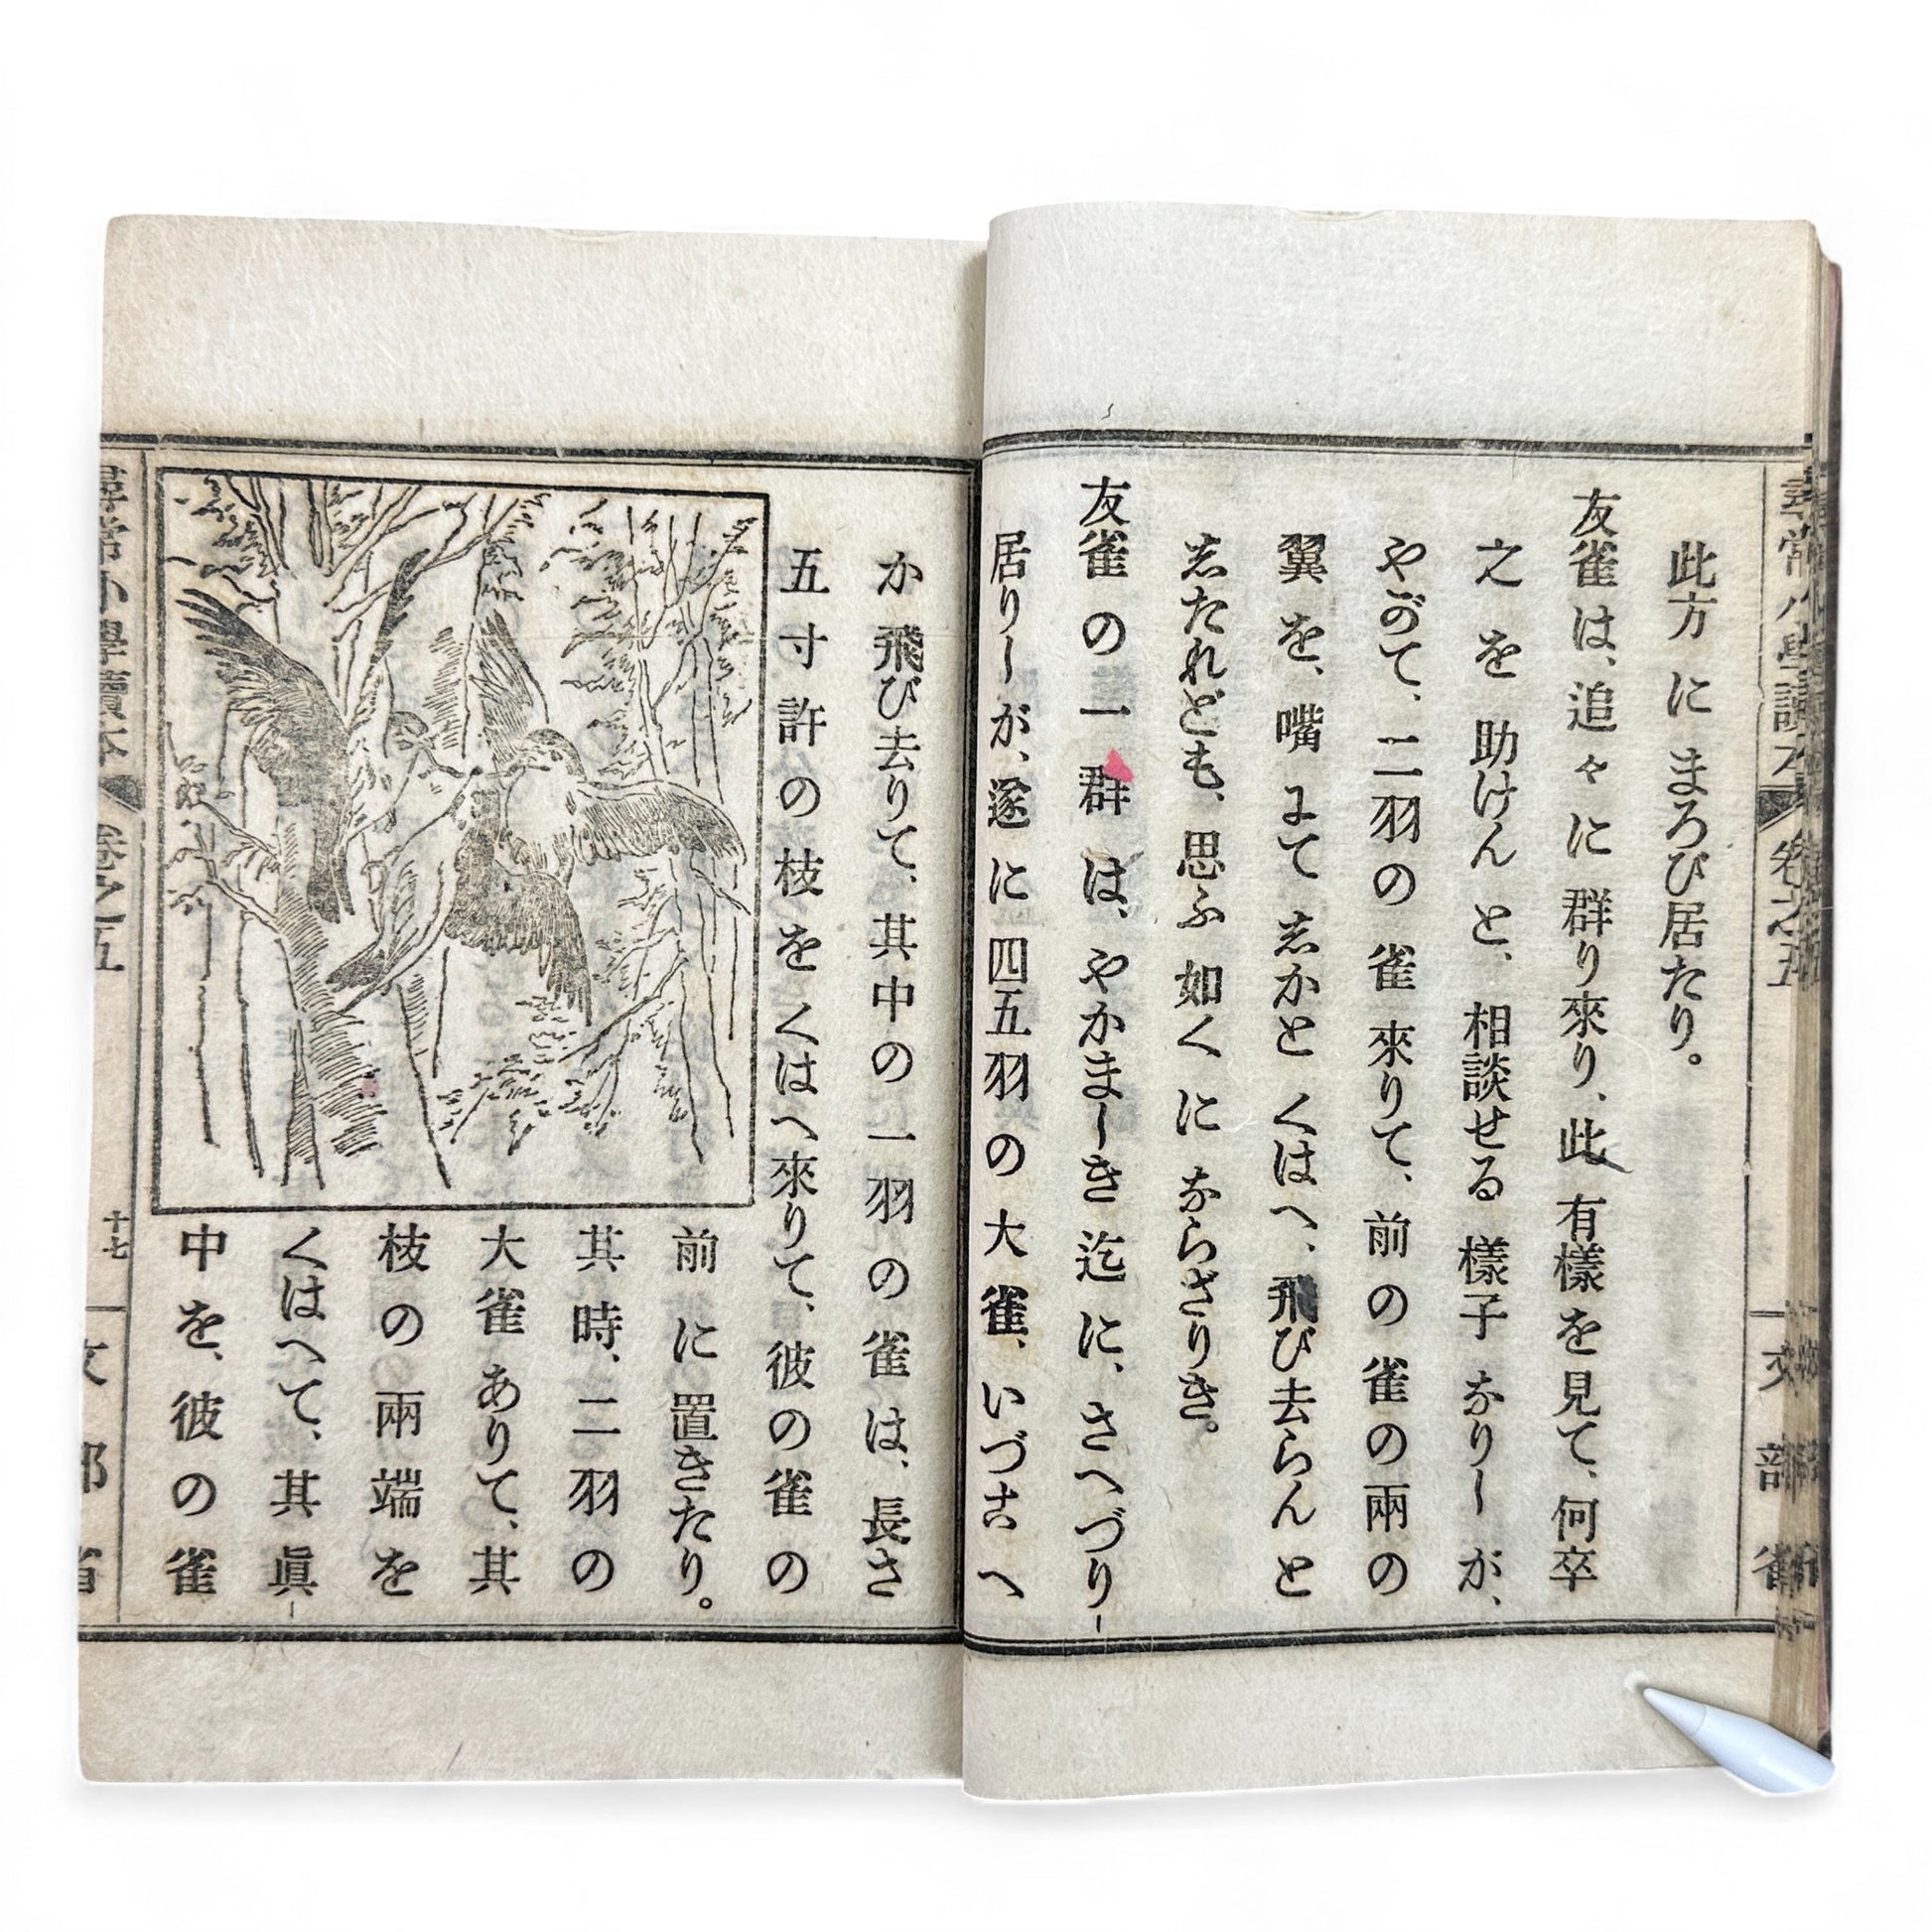 尋常小學讀本 卷之五 文部省
此方にまろび居たり。
友雀は、追々に群り來り、此有樣を見て、何卒
之を助けんと、相談せる樣子なりしが、
やがて、二羽の雀來りて、前の雀の兩の
翼を、嘴にてしかとくはへ、飛び去らんと
したれども、思ふ如くにならざりき。
友雀の一群は、やかましき迄に、さへづり
居りしが、遂に四五羽の大雀、いづこへ
か飛び去りて、其中の一羽の雀は、長さ
五寸許の枝をくはへ來りて、彼の雀の
前に置きたり。
其時、二羽の
大雀ありて、其
枝の兩端を
くはへて、其眞
中を、彼の雀
尋常小學讀本 卷之五 十七 文部省